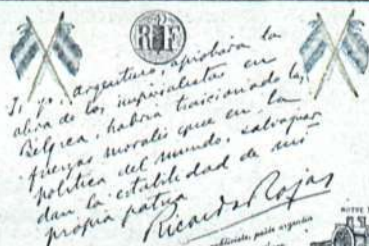 RF
Si yo, argentino, aprobara la
obra de los imperialistas en
Bélgica, habría traicionado las
fuerzas morales que en la
política del mundo, salvaguar
dan la estabilidad de mi
propia patria
Ricardo Rojas
publicista, poeta argentino
NOTRE